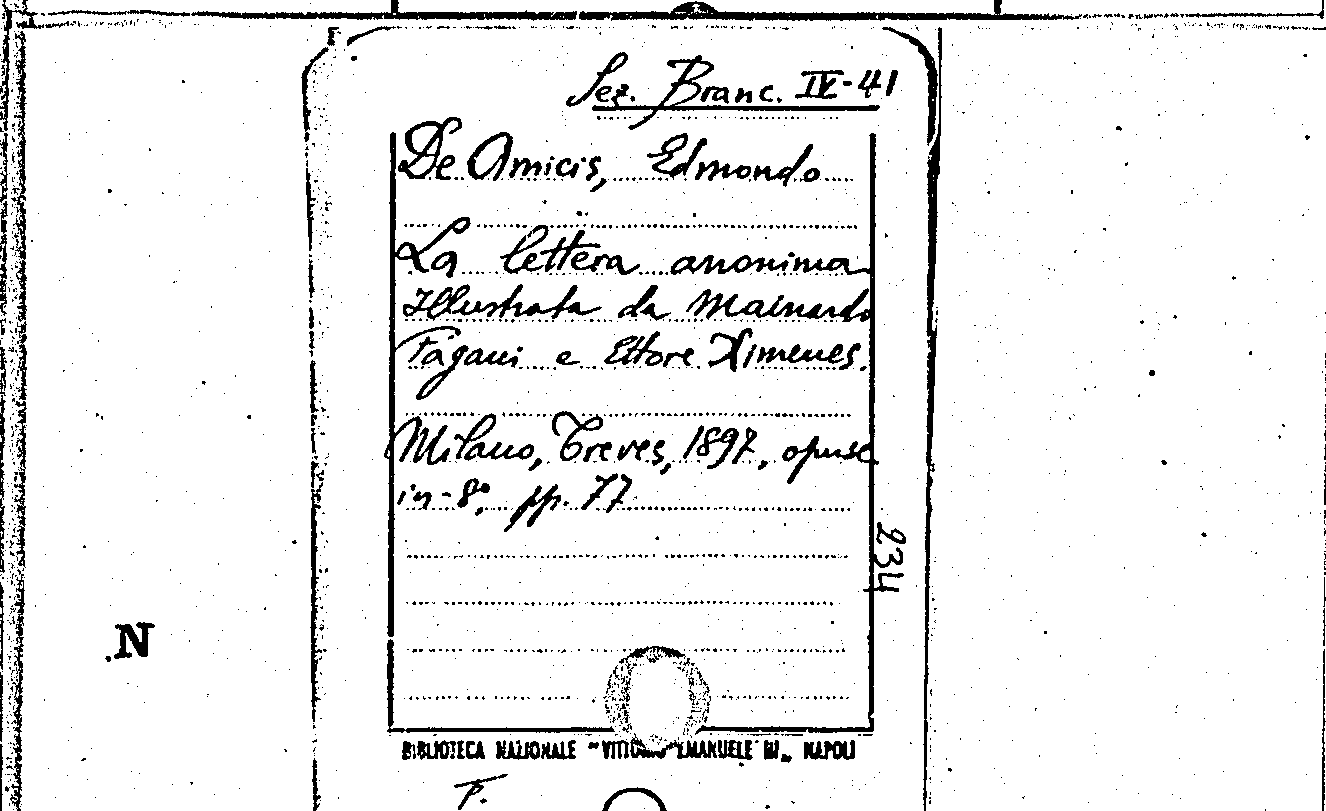 Sez. Branc. IV-41
De Amicis, Edmondo
La lettera anonima
Illustrata da Mainardo
Pagani e Ettore Ximenes.
Milano, Treves, 1897, opusc.
in-8°, pp. 77
234
N
BIBLIOTECA NAZIONALE "VITTORIO EMANUELE III" NAPOLI